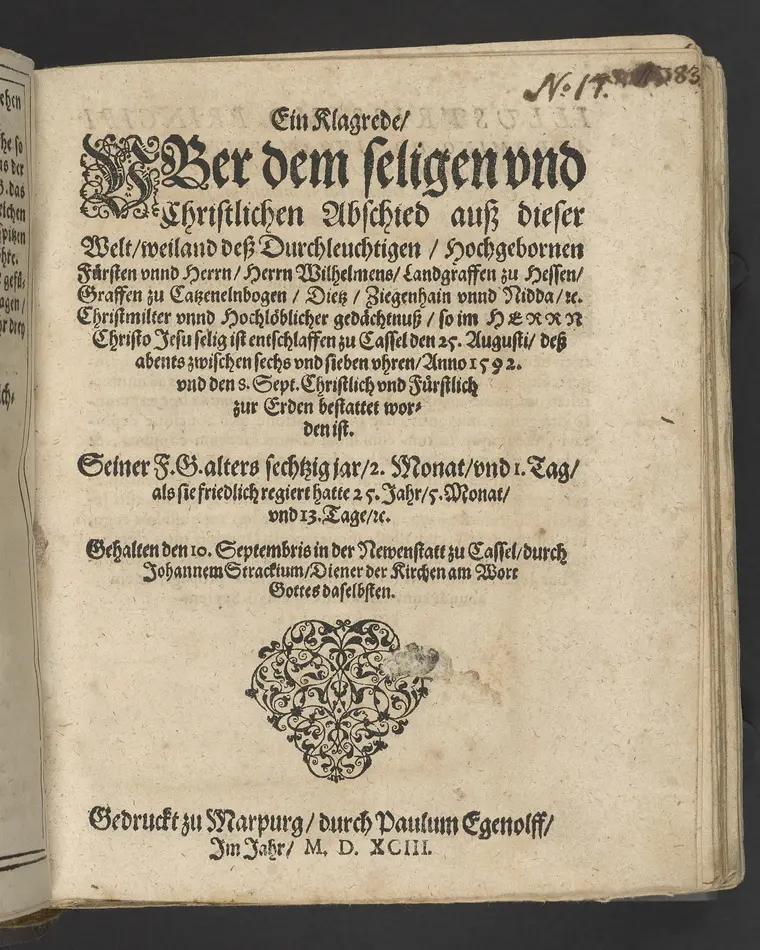 No 17. 83
Ein Klagrede/
VBer dem seligen vnd
Christlichen Abschied auß dieser
Welt/weiland deß Durchleuchtigen / Hochgebornen
Fürsten vnnd Herrn/ Herrn Wilhelmens/ Landgraffen zu Hessen/
Graffen zu Catzenelnbogen / Dietz / Ziegenhain vnnd Nidda/ ꝛc.
Christmilter vnnd Hochlöblicher gedächtnuß / so im HERRN
Christo Jesu selig ist entschlaffen zu Cassel den 25. Augusti/ deß
abents zwischen sechs vnd sieben vhren/Anno 1592.
vnd den 8. Sept. Christlich vnd Fürstlich
zur Erden bestattet wor⸗
den ist.
Seiner F. G. alters sechtzig jar/2. Monat/vnd 1. Tag/
als sie friedlich regiert hatte 25. Jahr/5. Monat/
vnd 13. Tage/ꝛc.
Gehalten den 10. Septembris in der Newenstatt zu Cassel/durch
Johannem Strackium/Diener der Kirchen am Wort
Gottes daselbsten.
Gedruckt zu Marpurg/ durch Paulum Egenolff/
Im Jahr/ M. D. XCIII.
ehen
he so
as der
das
lichen
spitzen
hte.
gefü⸗
agen/